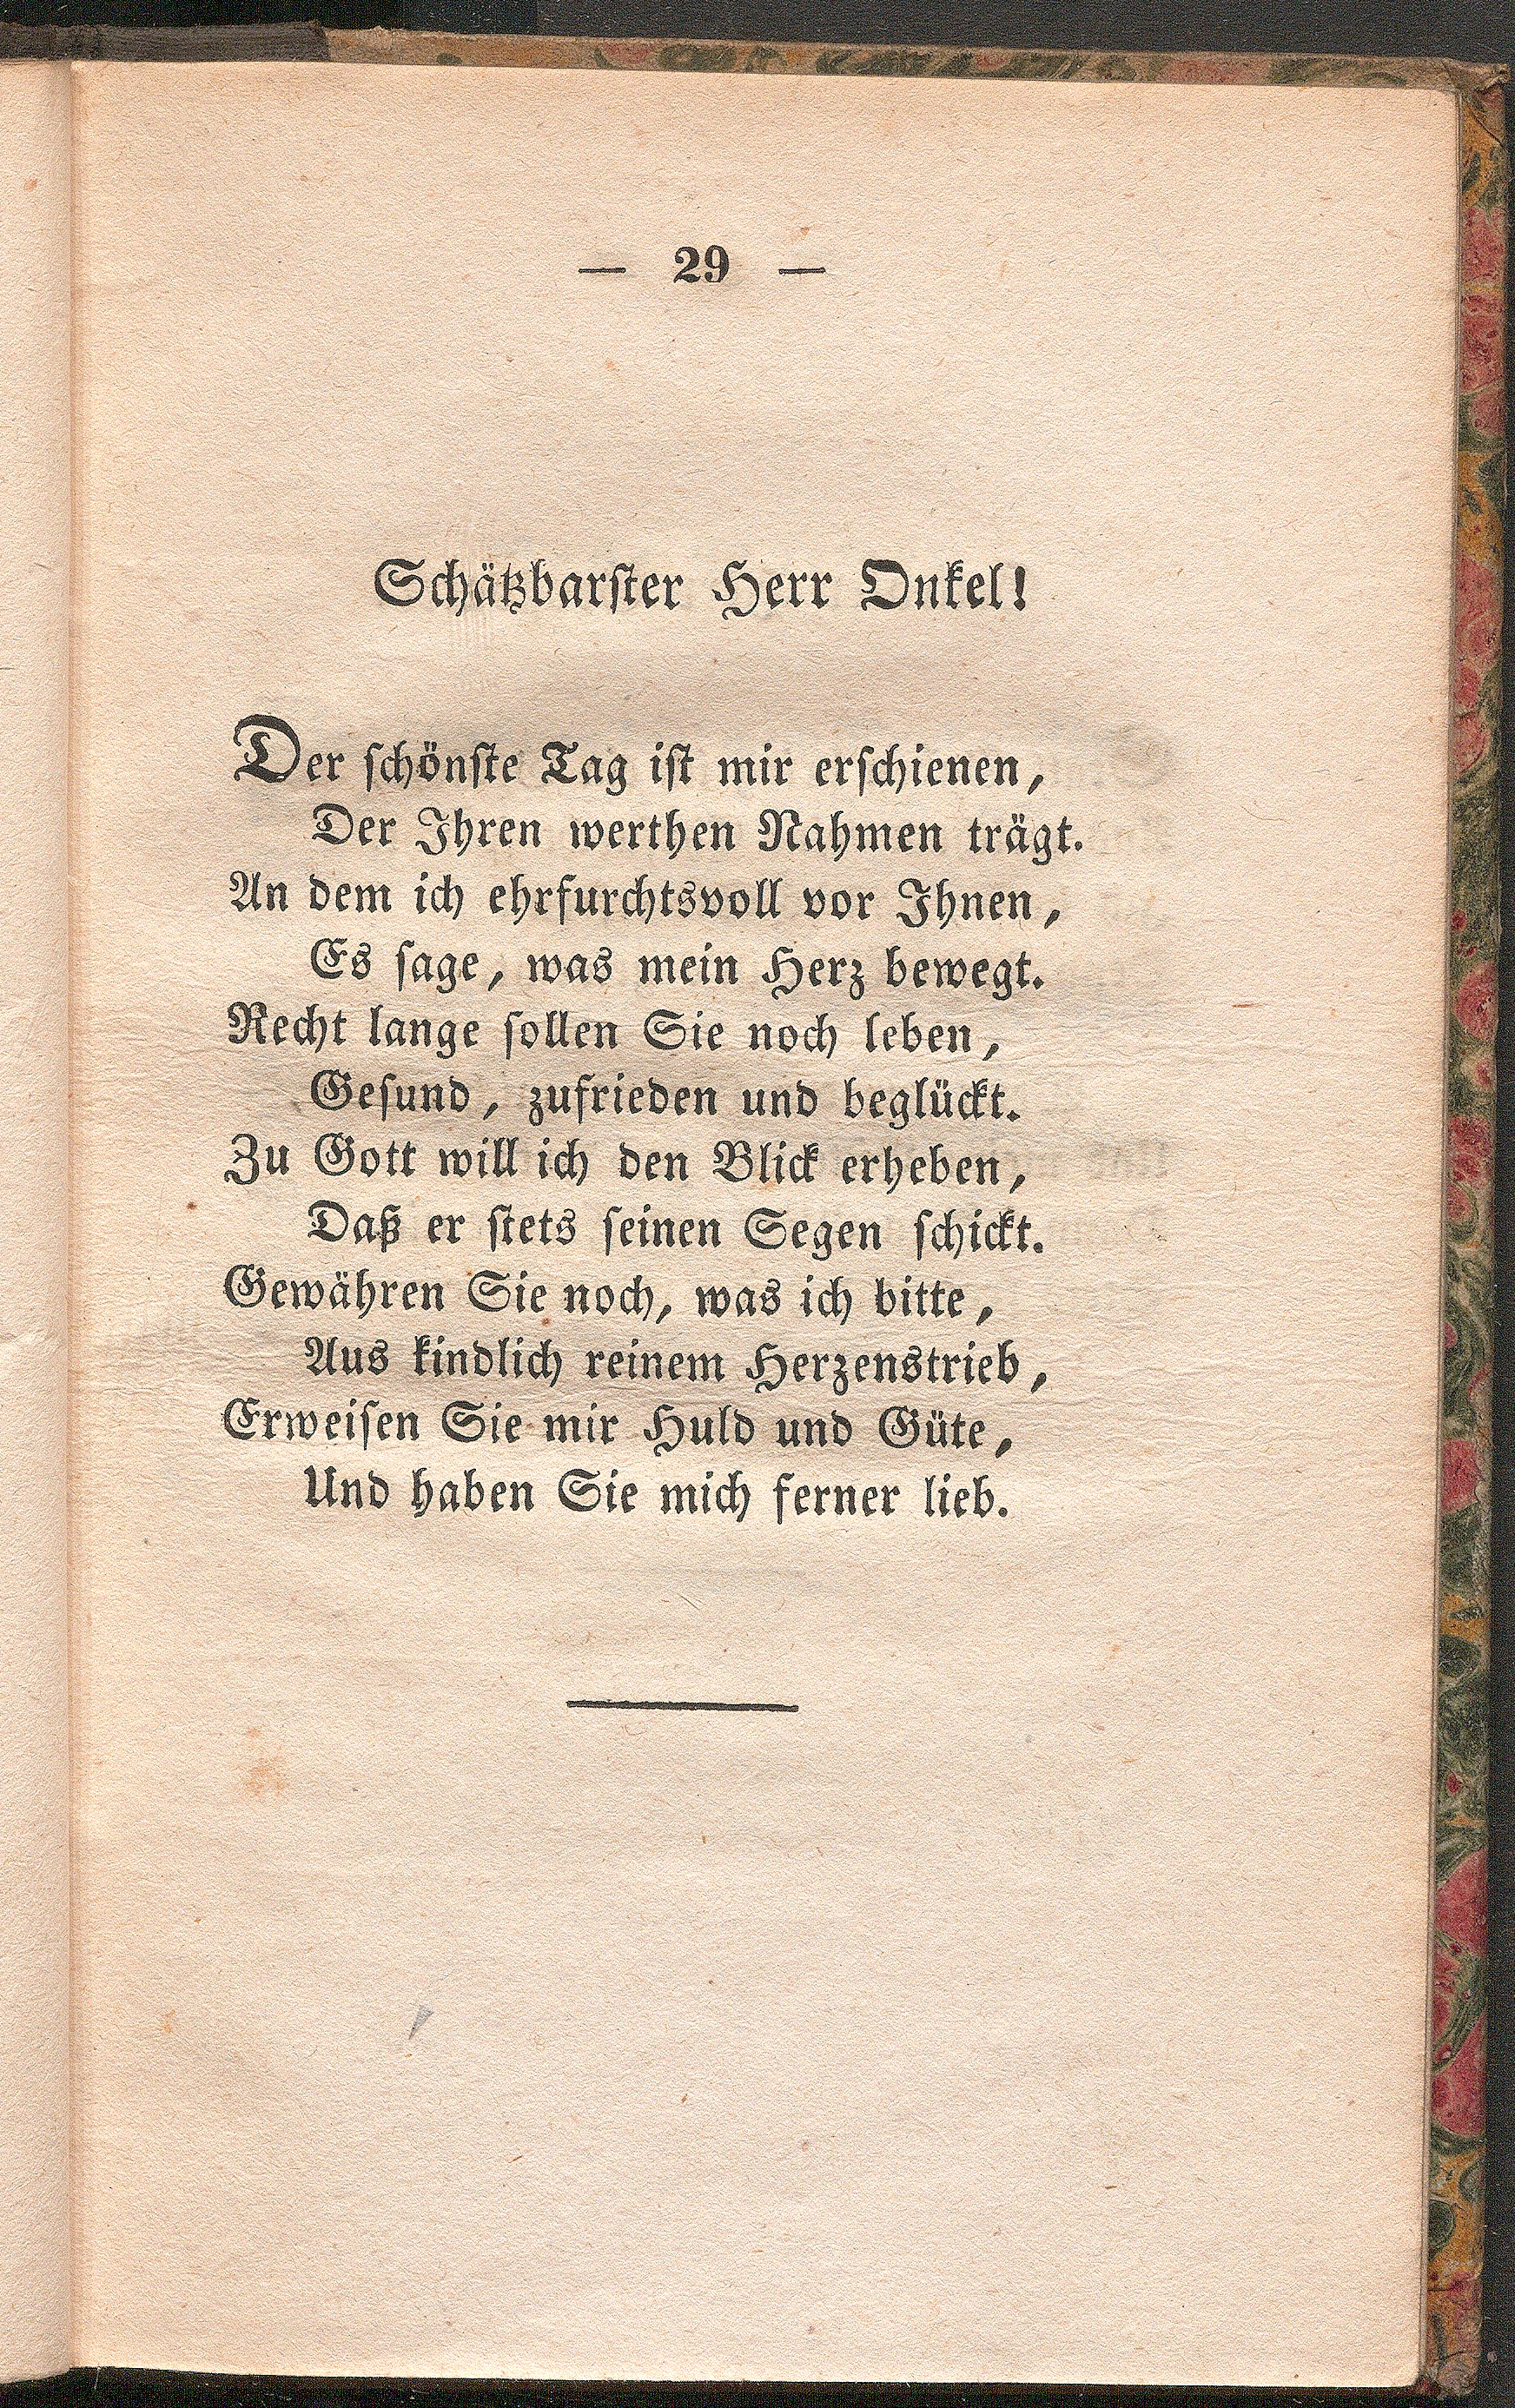 — 29 —
Schätzbarster Herr Onkel!
Der schönste Tag ist mir erschienen,
Der Ihren werthen Nahmen trägt.
An dem ich ehrfurchtsvoll vor Ihnen,
Es sage, was mein Herz bewegt.
Recht lange sollen Sie noch leben,
Gesund, zufrieden und beglückt.
Zu Gott will ich den Blick erheben,
Daß er stets seinen Segen schickt.
Gewähren Sie noch, was ich bitte,
Aus kindlich reinem Herzenstrieb,
Erweisen Sie mir Huld und Güte,
Und haben Sie mich ferner lieb.